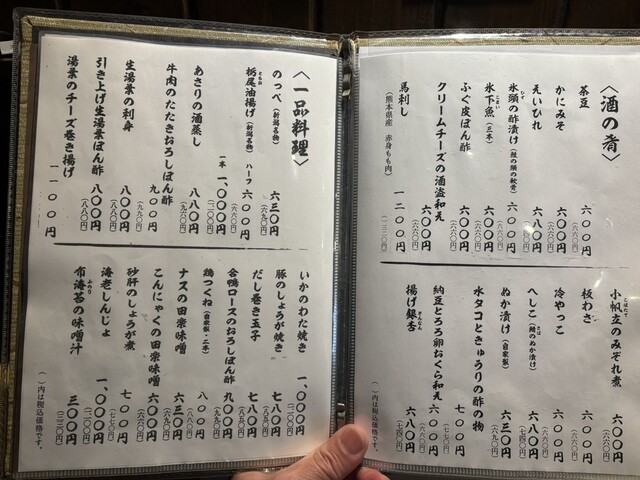 〈酒の肴〉
茶豆 六〇〇円
(六六〇円)
かにみそ 六〇〇円
(六六〇円)
えいひれ 六八〇円
氷頭の酢漬け(鮭の頭の軟骨) 六〇〇円
(六六〇円)
氷下魚(三本) 六〇〇円
(六六〇円)
ふぐ皮ぽん酢 六〇〇円
(六六〇円)
クリームチーズの酒盗和え 六〇〇円
(六六〇円)
馬刺し 一二〇〇円
(熊本県産 赤身もも肉)
(一三二〇円)
小帆立のみぞれ煮 六〇〇円
(六六〇円)
板わさ 六〇〇円
(六六〇円)
冷やっこ 六〇〇円
(六六〇円)
へしこ(鯖のぬか漬け) 六八〇円
(七四〇円)
ぬか漬け(自家製) 六三〇円
(六九〇円)
水タコときゅうりの酢の物 七〇〇円
(七七〇円)
納豆とろろ卵おくら和え 六〇〇円
(六六〇円)
揚げ銀杏 六八〇円
(七四〇円)
( )内は税込価格です。
〈一品料理〉
のっぺ(新潟名物) 六三〇円
(六九〇円)
栃尾油揚げ(新潟名物) ハーフ 六〇〇円
(六六〇円)
一本 一、〇〇〇円
(一一〇〇円)
あさりの酒蒸し 八〇〇円
牛肉のたたきおろしぽん酢 九〇〇円
(九九〇円)
生湯葉の刺身 八〇〇円
(八八〇円)
引き上げ生湯葉ぽん酢 八〇〇円
(八八〇円)
湯葉のチーズ巻き揚げ 一一〇〇円
いかのわた焼き 一、〇〇〇円
(一一〇〇円)
豚のしょうが焼き 七八〇円
だし巻き玉子 七八〇円
合鴨ロースのおろしぽん酢 九〇〇円
(九九〇円)
鶏つくね(自家製・二本) 八〇〇円
(八八〇円)
ナスの田楽味噌 六三〇円
(六九〇円)
こんにゃくの田楽味噌 六〇〇円
(六六〇円)
砂肝のしょうが煮 七〇〇円
(七七〇円)
海老しんじょ 一、〇〇〇円
(一一〇〇円)
布海苔の味噌汁 三〇〇円
(三三〇円)
( )内は税込価格です。